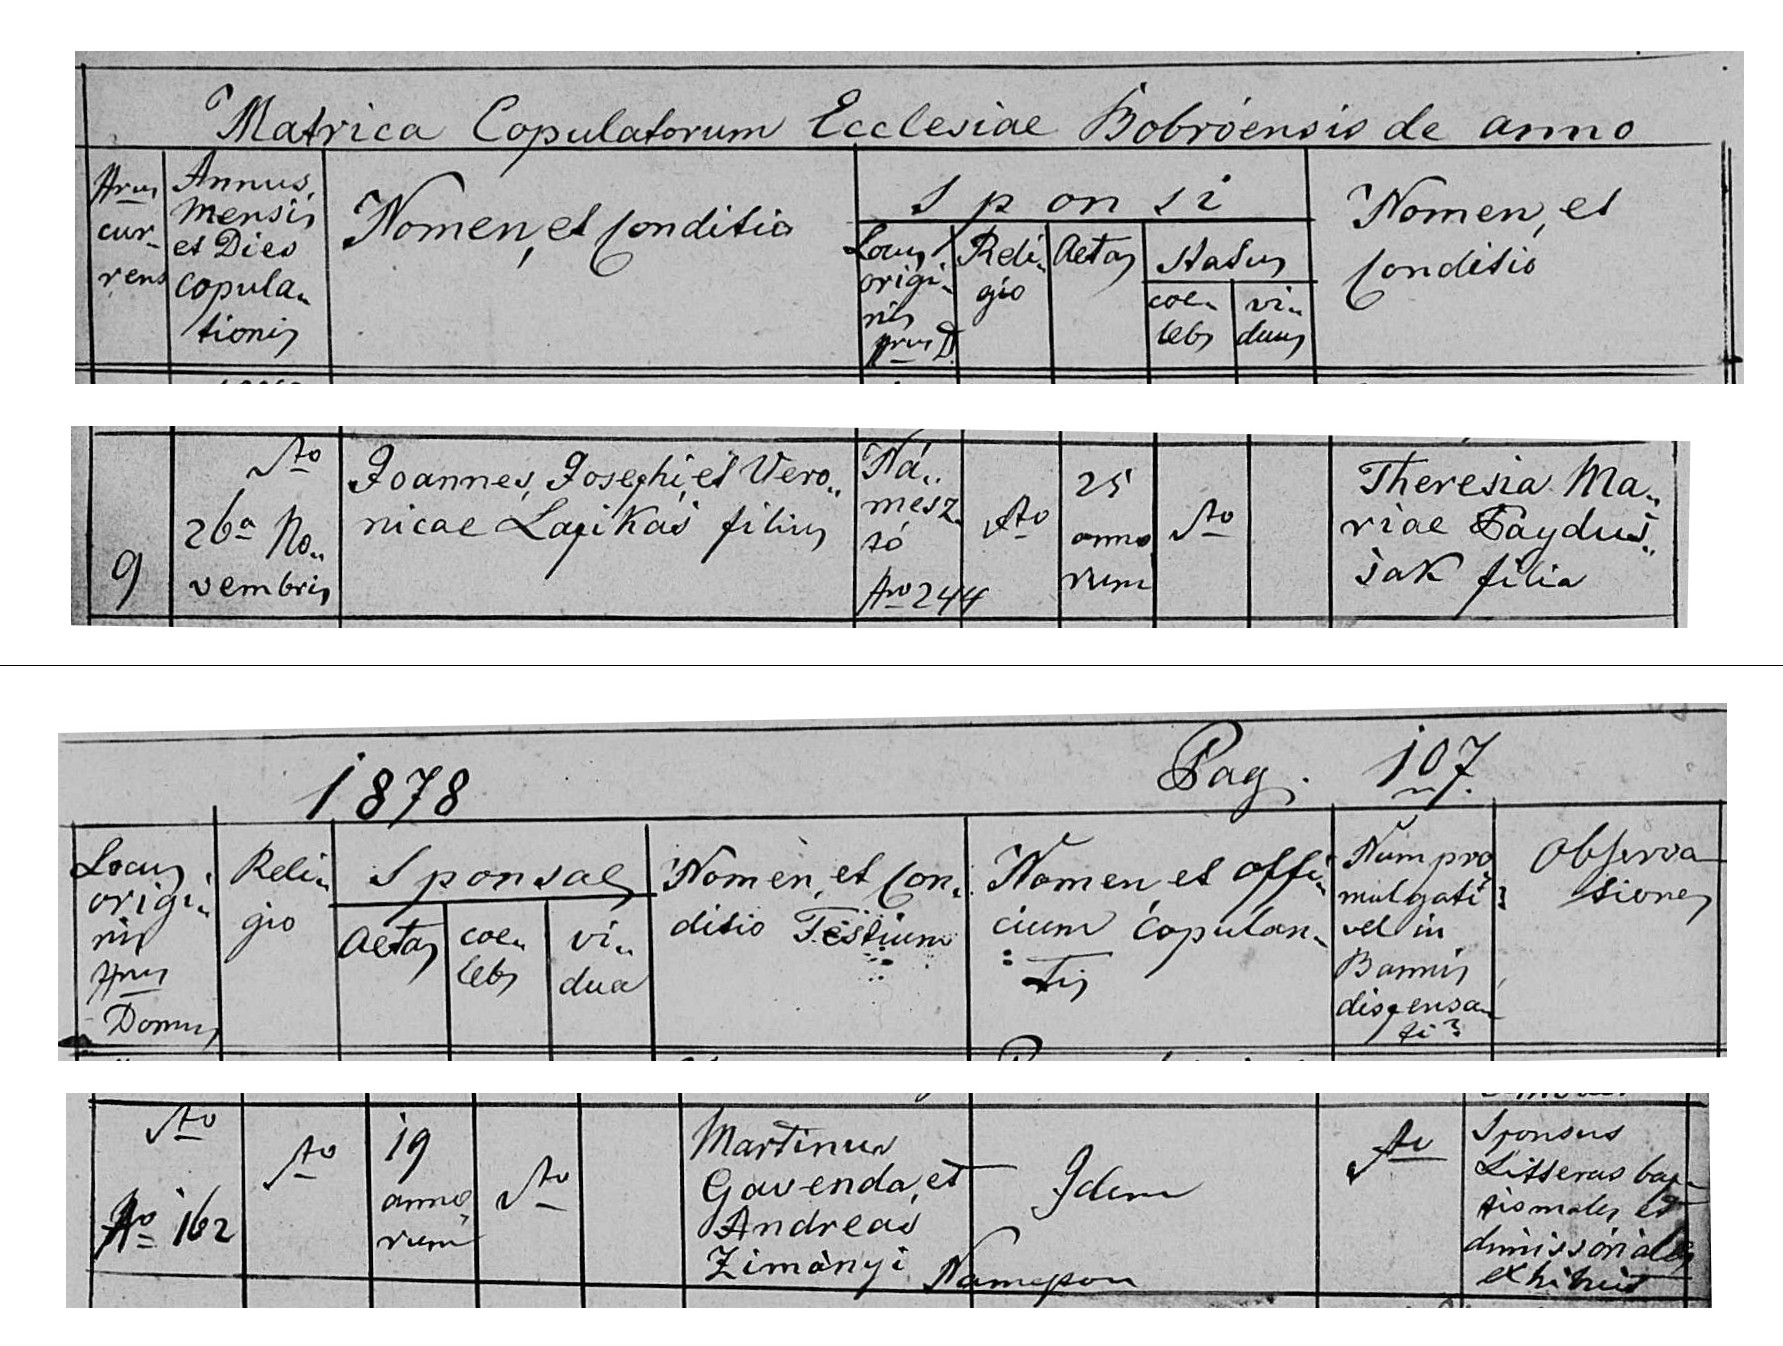 Matrica Copulatorum Ecclesiae Bobróensis de anno
Nrus
cur-
rens
Annus,
mensis
et Dies
copula-
tionis
Nomen, et Conditio
Sponsi
Locus
origi-
nis
Nrus D.
Reli-
gio
Aetas
Status
coe-
lebs
vi-
duus
Nomen, et
Conditio
9
Dto
26a No-
vembris
Joannes, Josephi, et Vero-
nicae Lapikás filius
Ná-
mesz-
tó
Nro 244
Dto
25
anno
rum
Dto
Theresia Ma-
riae Paydus-
sak filia
1878
Pag. 107.
Locus
origi-
nis
Nrus
Domus
Reli-
gio
Sponsae
Aetas
coe-
lebs
vi-
dua
Nomen, et Con-
ditio Testium
Nomen et offi-
cium Copulan-
tis
Num pro-
mulgati?
vel in
Bannis
dispensa-
ti?
Observa
tiones
Dto
No 162
Dto
19
anno
rum
Dto
Martinus
Gavenda, et
Andreas
Zimányi
Idem
Dto
Sponsus
Litteras bap-
tismales et
dimissoriales
exhibuit